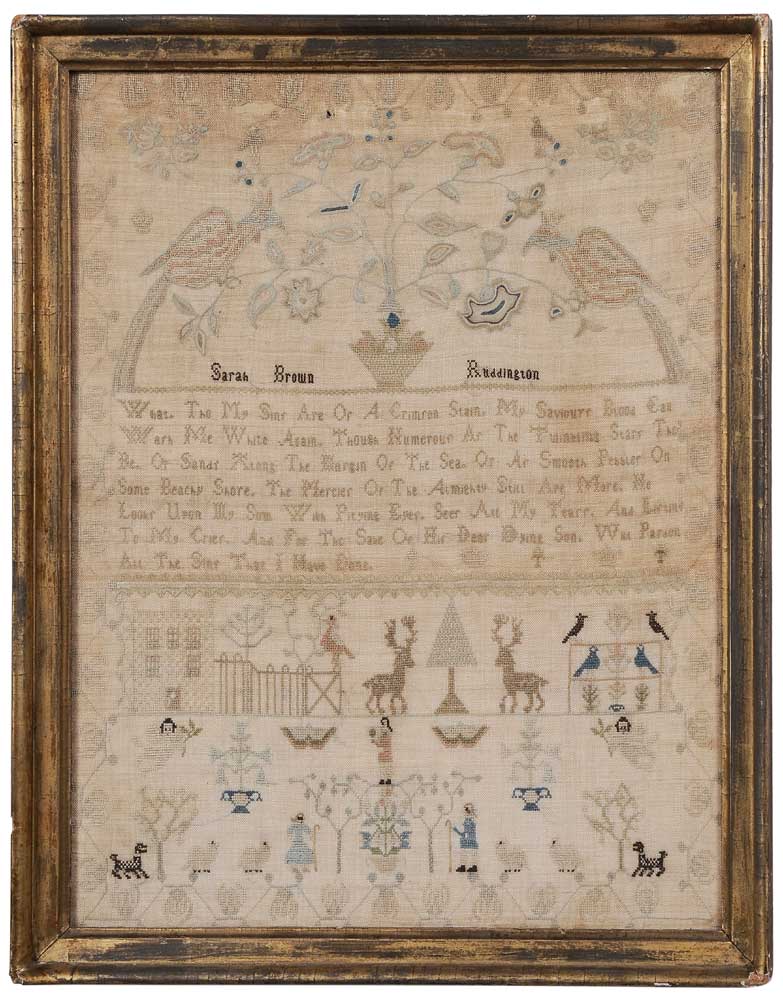 Sarah Brown Ruddington
What. Tho My Sins Are Of A Crimson Stain. My Saviours Blood Can
Wash Me White Again. Though Numerous As The Twinkling Stars They
Be. Or Sands Along The Margin Of The Sea. Or As Smooth Pebbles On
Some Beachy Shore. The Mercies Of The Almighty Still Are More. He
Looks Upon My Soul With Pitying Eyes. Sees All My Fears. And Listens
To My Cries. And For The Sake Of His Dear Dying Son. Will Pardon
All The Sins That I Have Done.